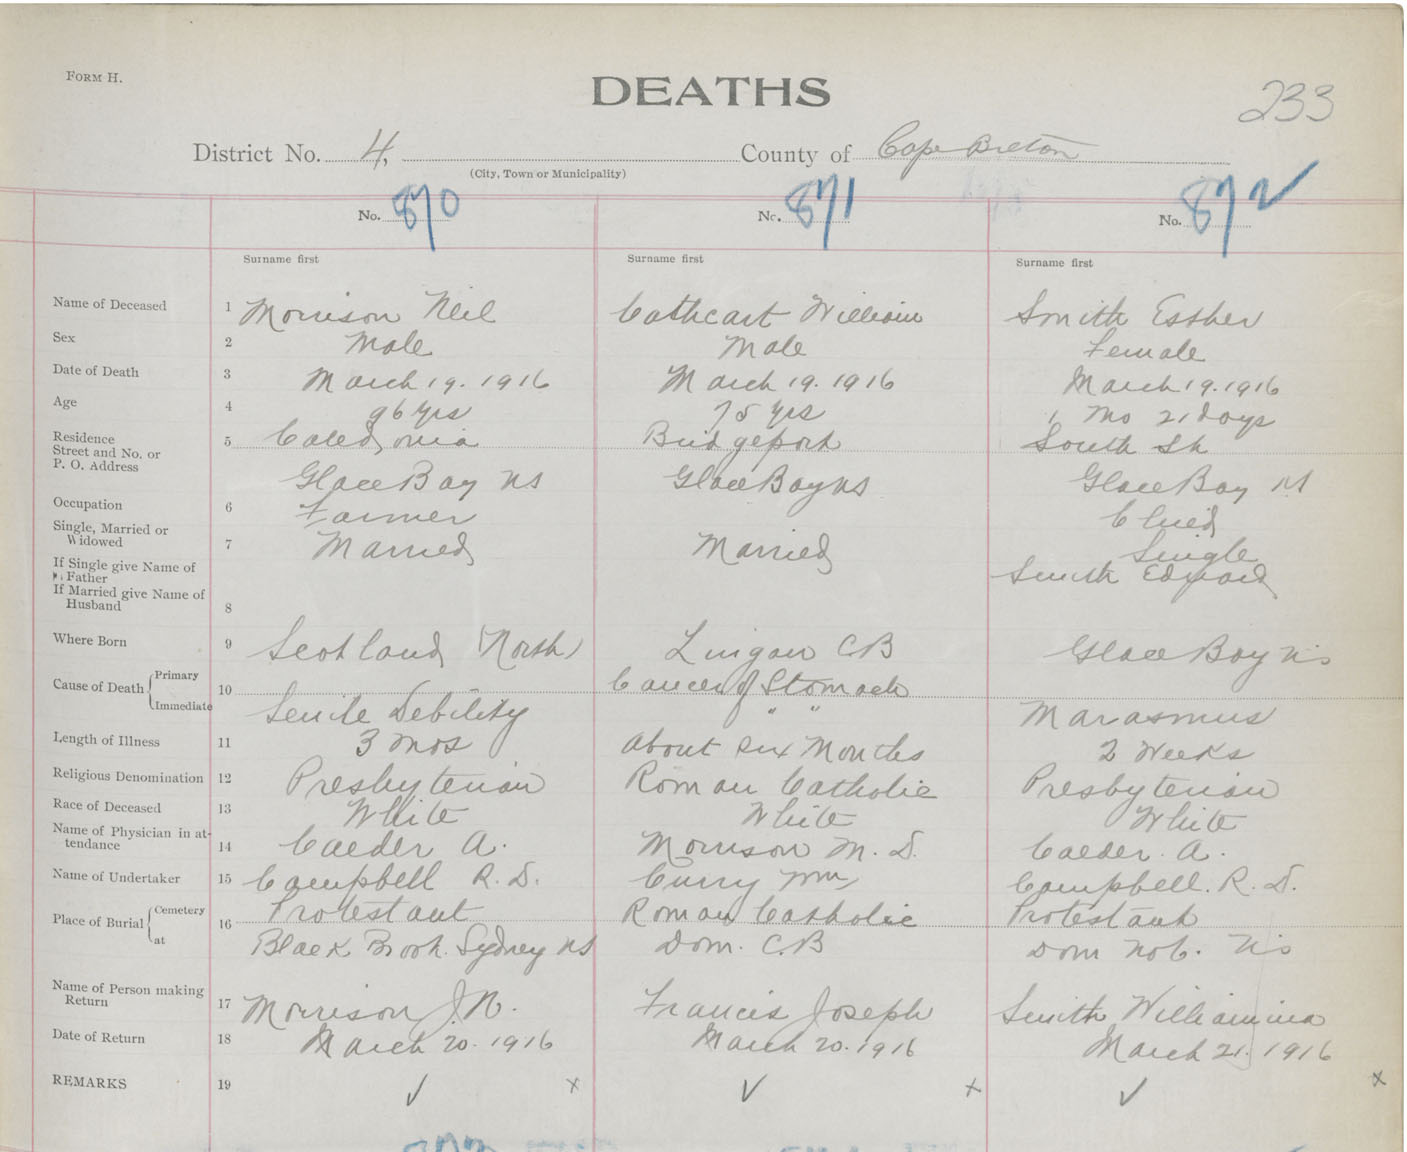 FORM H.
DEATHS
233
District No. 4, County of Cape Breton
(City, Town or Municipality)
No. 870 No. 871 No. 872
Surname first Surname first Surname first
Name of Deceased 1 Morrison Neil Cathcart William Smith Essher
Sex 2 Male Male Female
Date of Death 3 March 19. 1916 March 19. 1916 March 19. 1916
Age 4 96 yrs 75 yrs 1 Mo 21 days
Residence 5 Caledonia Bridgeport South St
Street and No. or
P. O. Address Glace Bay NS Glace Bay NS Glace Bay NS
Occupation 6 Farmer Child
Single, Married or
Widowed 7 Married Married Single
If Single give Name of
Father Smith Edward
If Married give Name of
Husband 8
Where Born 9 Scotland (North) Lingan CB Glace Bay NS
Cause of Death Primary Cancer of Stomach
Immediate 10 Senile Debility " " Marasmus
Length of Illness 11 3 Mos About six Months 2 Weeks
Religious Denomination 12 Presbyterian Roman Catholic Presbyterian
Race of Deceased 13 White White White
Name of Physician in at-
tendance 14 Calder A. Morrison M. D. Calder. A.
Name of Undertaker 15 Campbell R. D. Curry Wm Campbell. R. D.
Place of Burial Cemetery 16 Protestant Roman Catholic Protestant
at Black Brook. Sydney NS Dom. C.B Dom No6. NS
Name of Person making
Return 17 Morrison J. N. Francis Joseph Smith Williamina
Date of Return 18 March 20. 1916 March 20. 1916 March 21. 1916
REMARKS 19 ✓ x ✓ x ✓ x